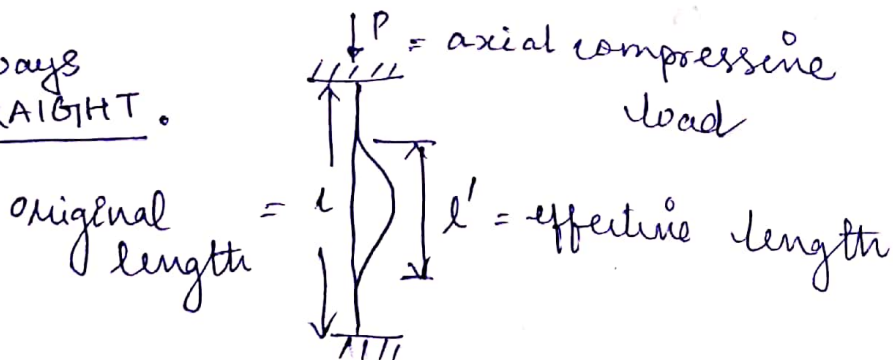 ways
RAIGHT.
P = axial compressive
load
original = l
length
l' = effective length